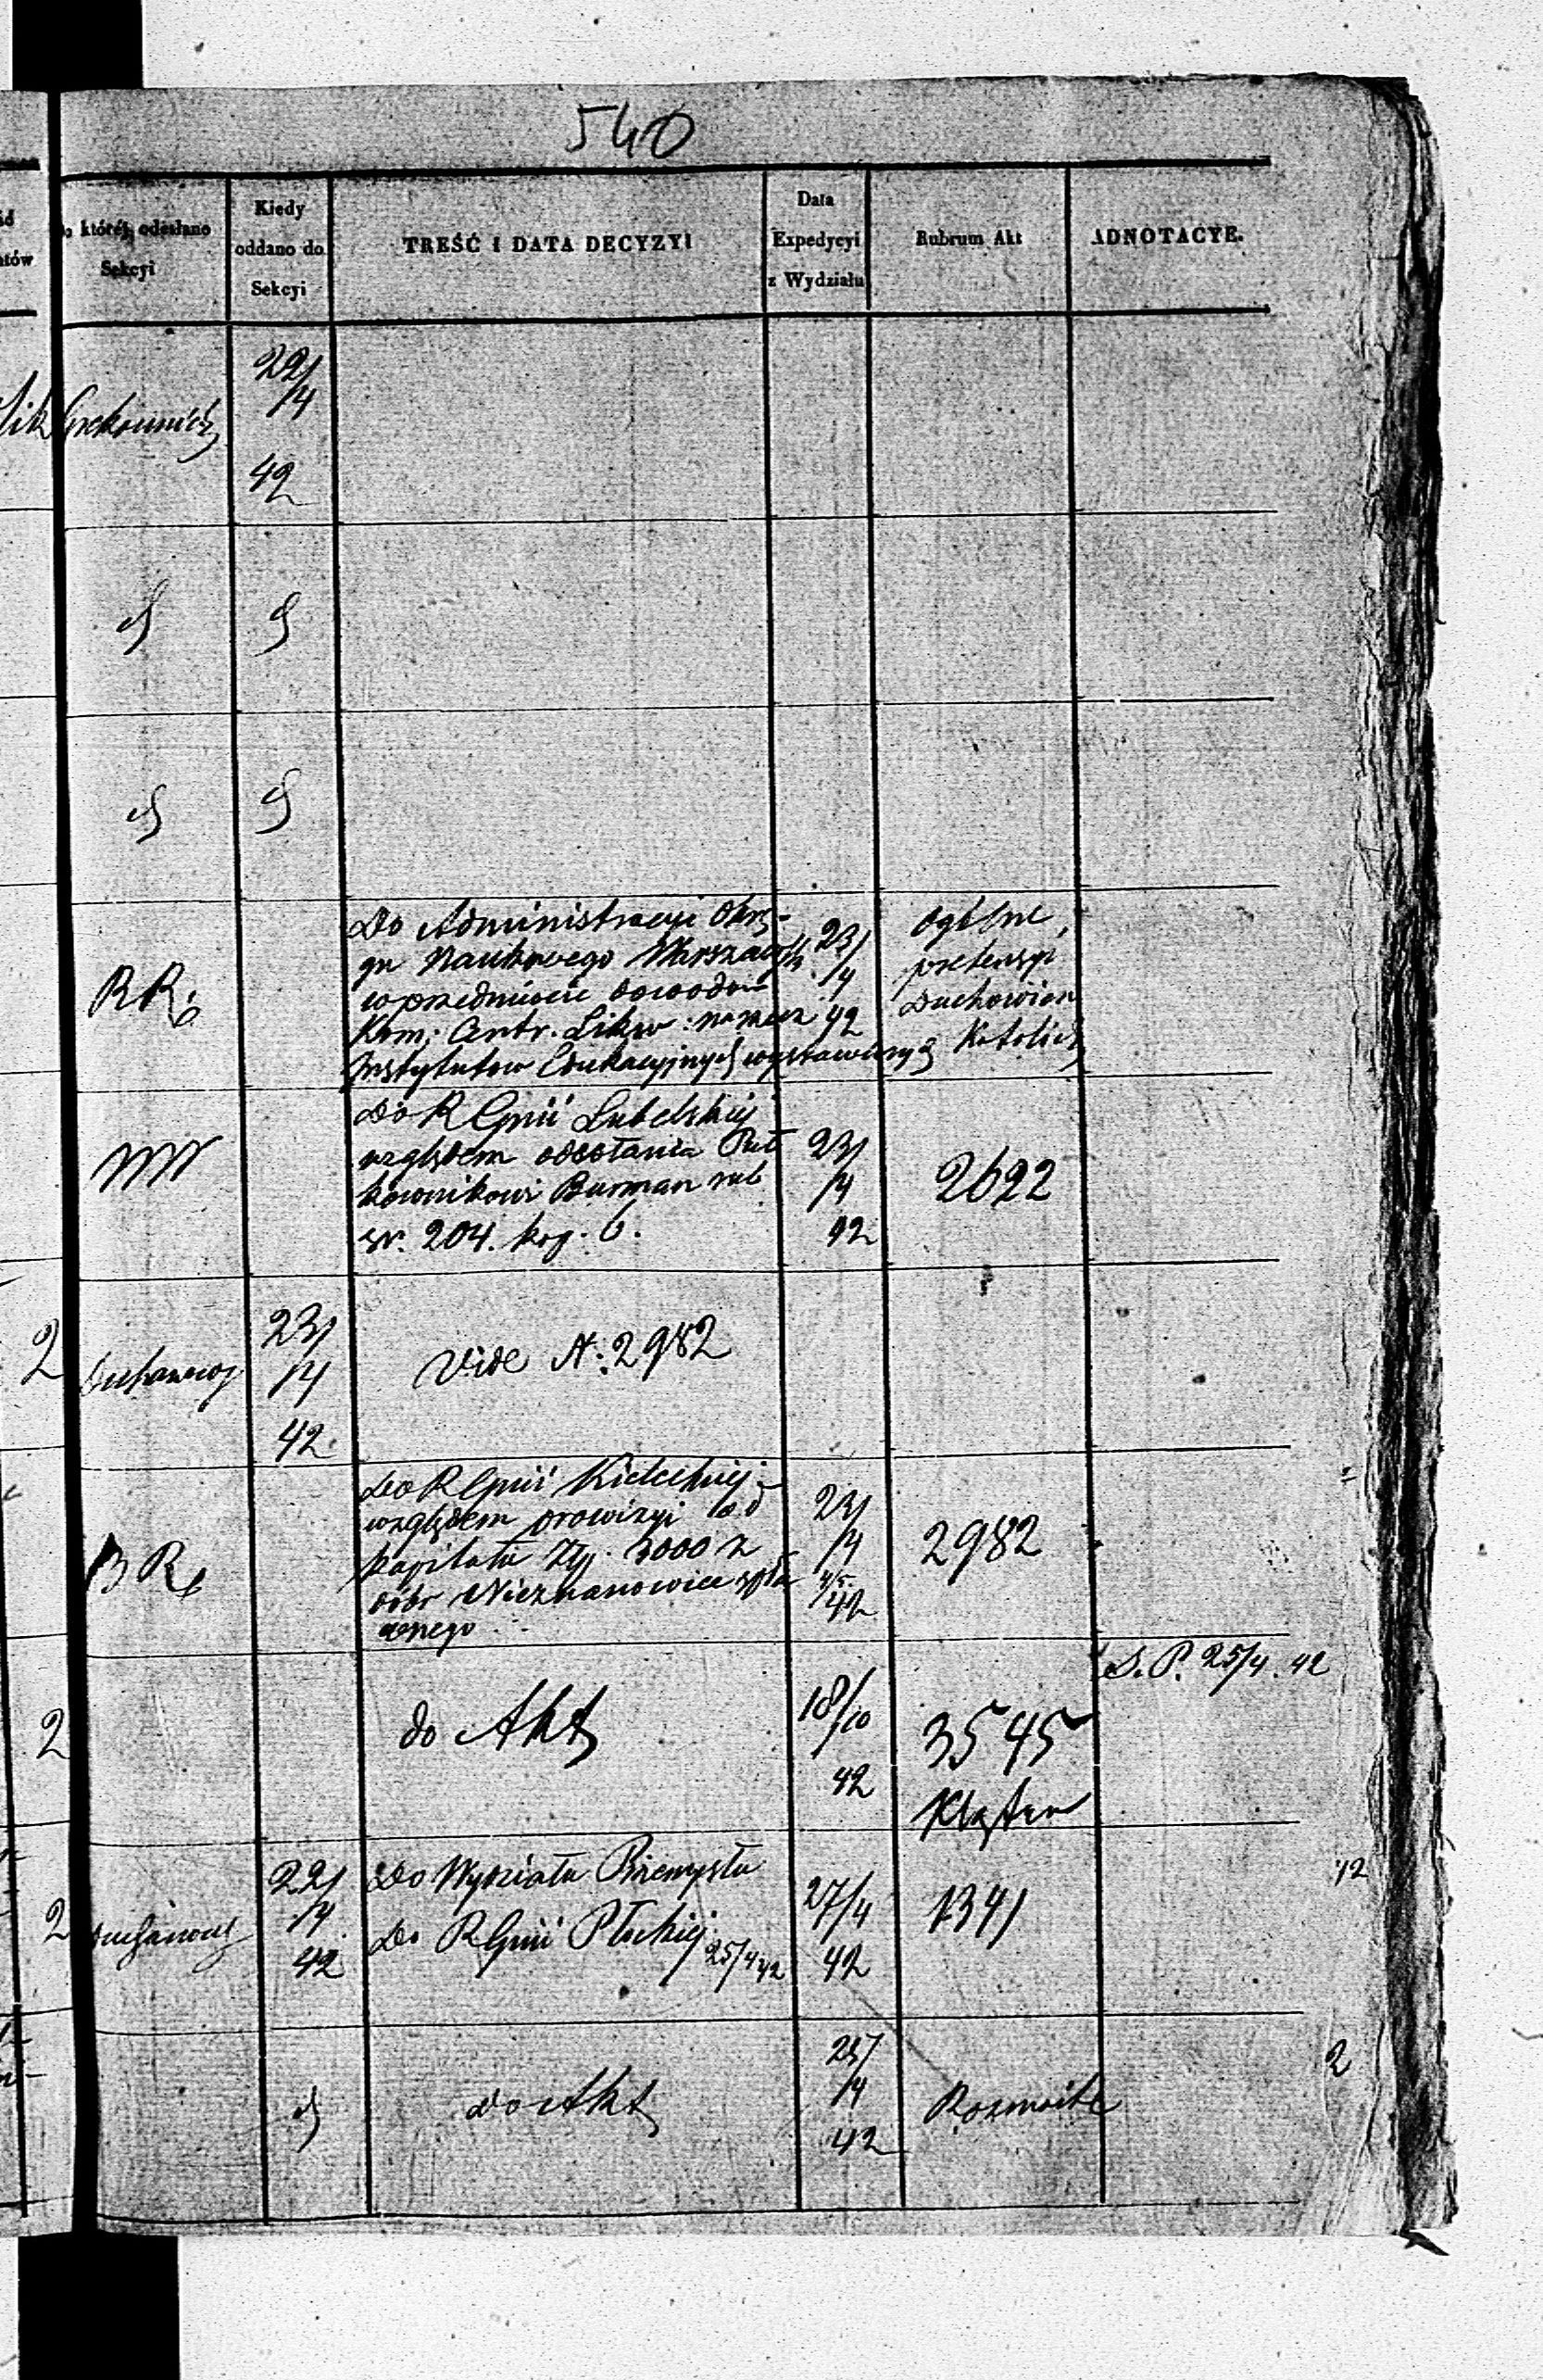 540
Do której odesłano
Sekcyi
Kiedy
oddano do
Sekcyi
TREŚĆ I DATA DECYZYI
Data
Expedycyi
z Wydziału
Rubrum Akt
ADNOTACYE.
22/
/4
42
RR.
Do Administracyi Okrę-
gu Naukowego Warszaws
w przedmiocie dowodów
Kom: Centr. Likw: na rzecz
Instytutów Edukacyjnych wystawionych
23/
/4
42
Ogólne
pretensyi
Duchowien
Katolick
Do R Gnii Lubelskiej
względem odesłania Puł
kownikowi Burman rub
sr. 204. kop. 6.
23/
/4
42
2622
23/
/4
42
Vide N: 2982
BR
Do R Gnii Kieleckiej
względem prowizyi od
kapitału Złp. 3000 z
dóbr Nieznanowice spła
conego
23/
/4
4/5.
42
2982
do Akt
18/10
42
3545
S. P. 25/4. 42
22/
/4
42
Do Wydziału Przemysłu
Do R Gnii Płockiej
25/4 42
27/4
42
1341
do Akt
25/
/4
42
Rozmaite